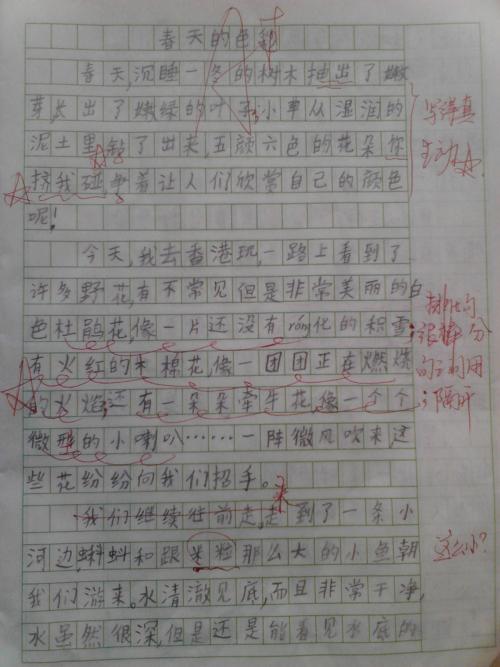 春天的色彩
春天,沉睡一冬的树木抽出了嫩
芽,长出了嫩绿的叶子;小草从湿润的
泥土里钻了出来,五颜六色的花朵你
挤我碰争着让人们欣赏自己的颜色
呢!
今天,我去香港玩,一路上看到了
许多野花,有不常见但是非常美丽的白
色杜鹃花,像一片还没有róng化的积雪;
有火红的木棉花,像一团团正在燃烧
的火焰;还有一朵朵牵牛花,像一个个
微型的小喇叭……一阵微风吹来,这
些花纷纷向我们招手。
我们继续往前走,走到了一条小
来
河边,蝌蚪和跟米粒那么大的小鱼朝
我们游来。水清澈见底,而且非常干净,
水虽然很深,但是还是能看见水底的
写得真
生动
排比句
很棒 分
句之间用
;隔开
这么小?